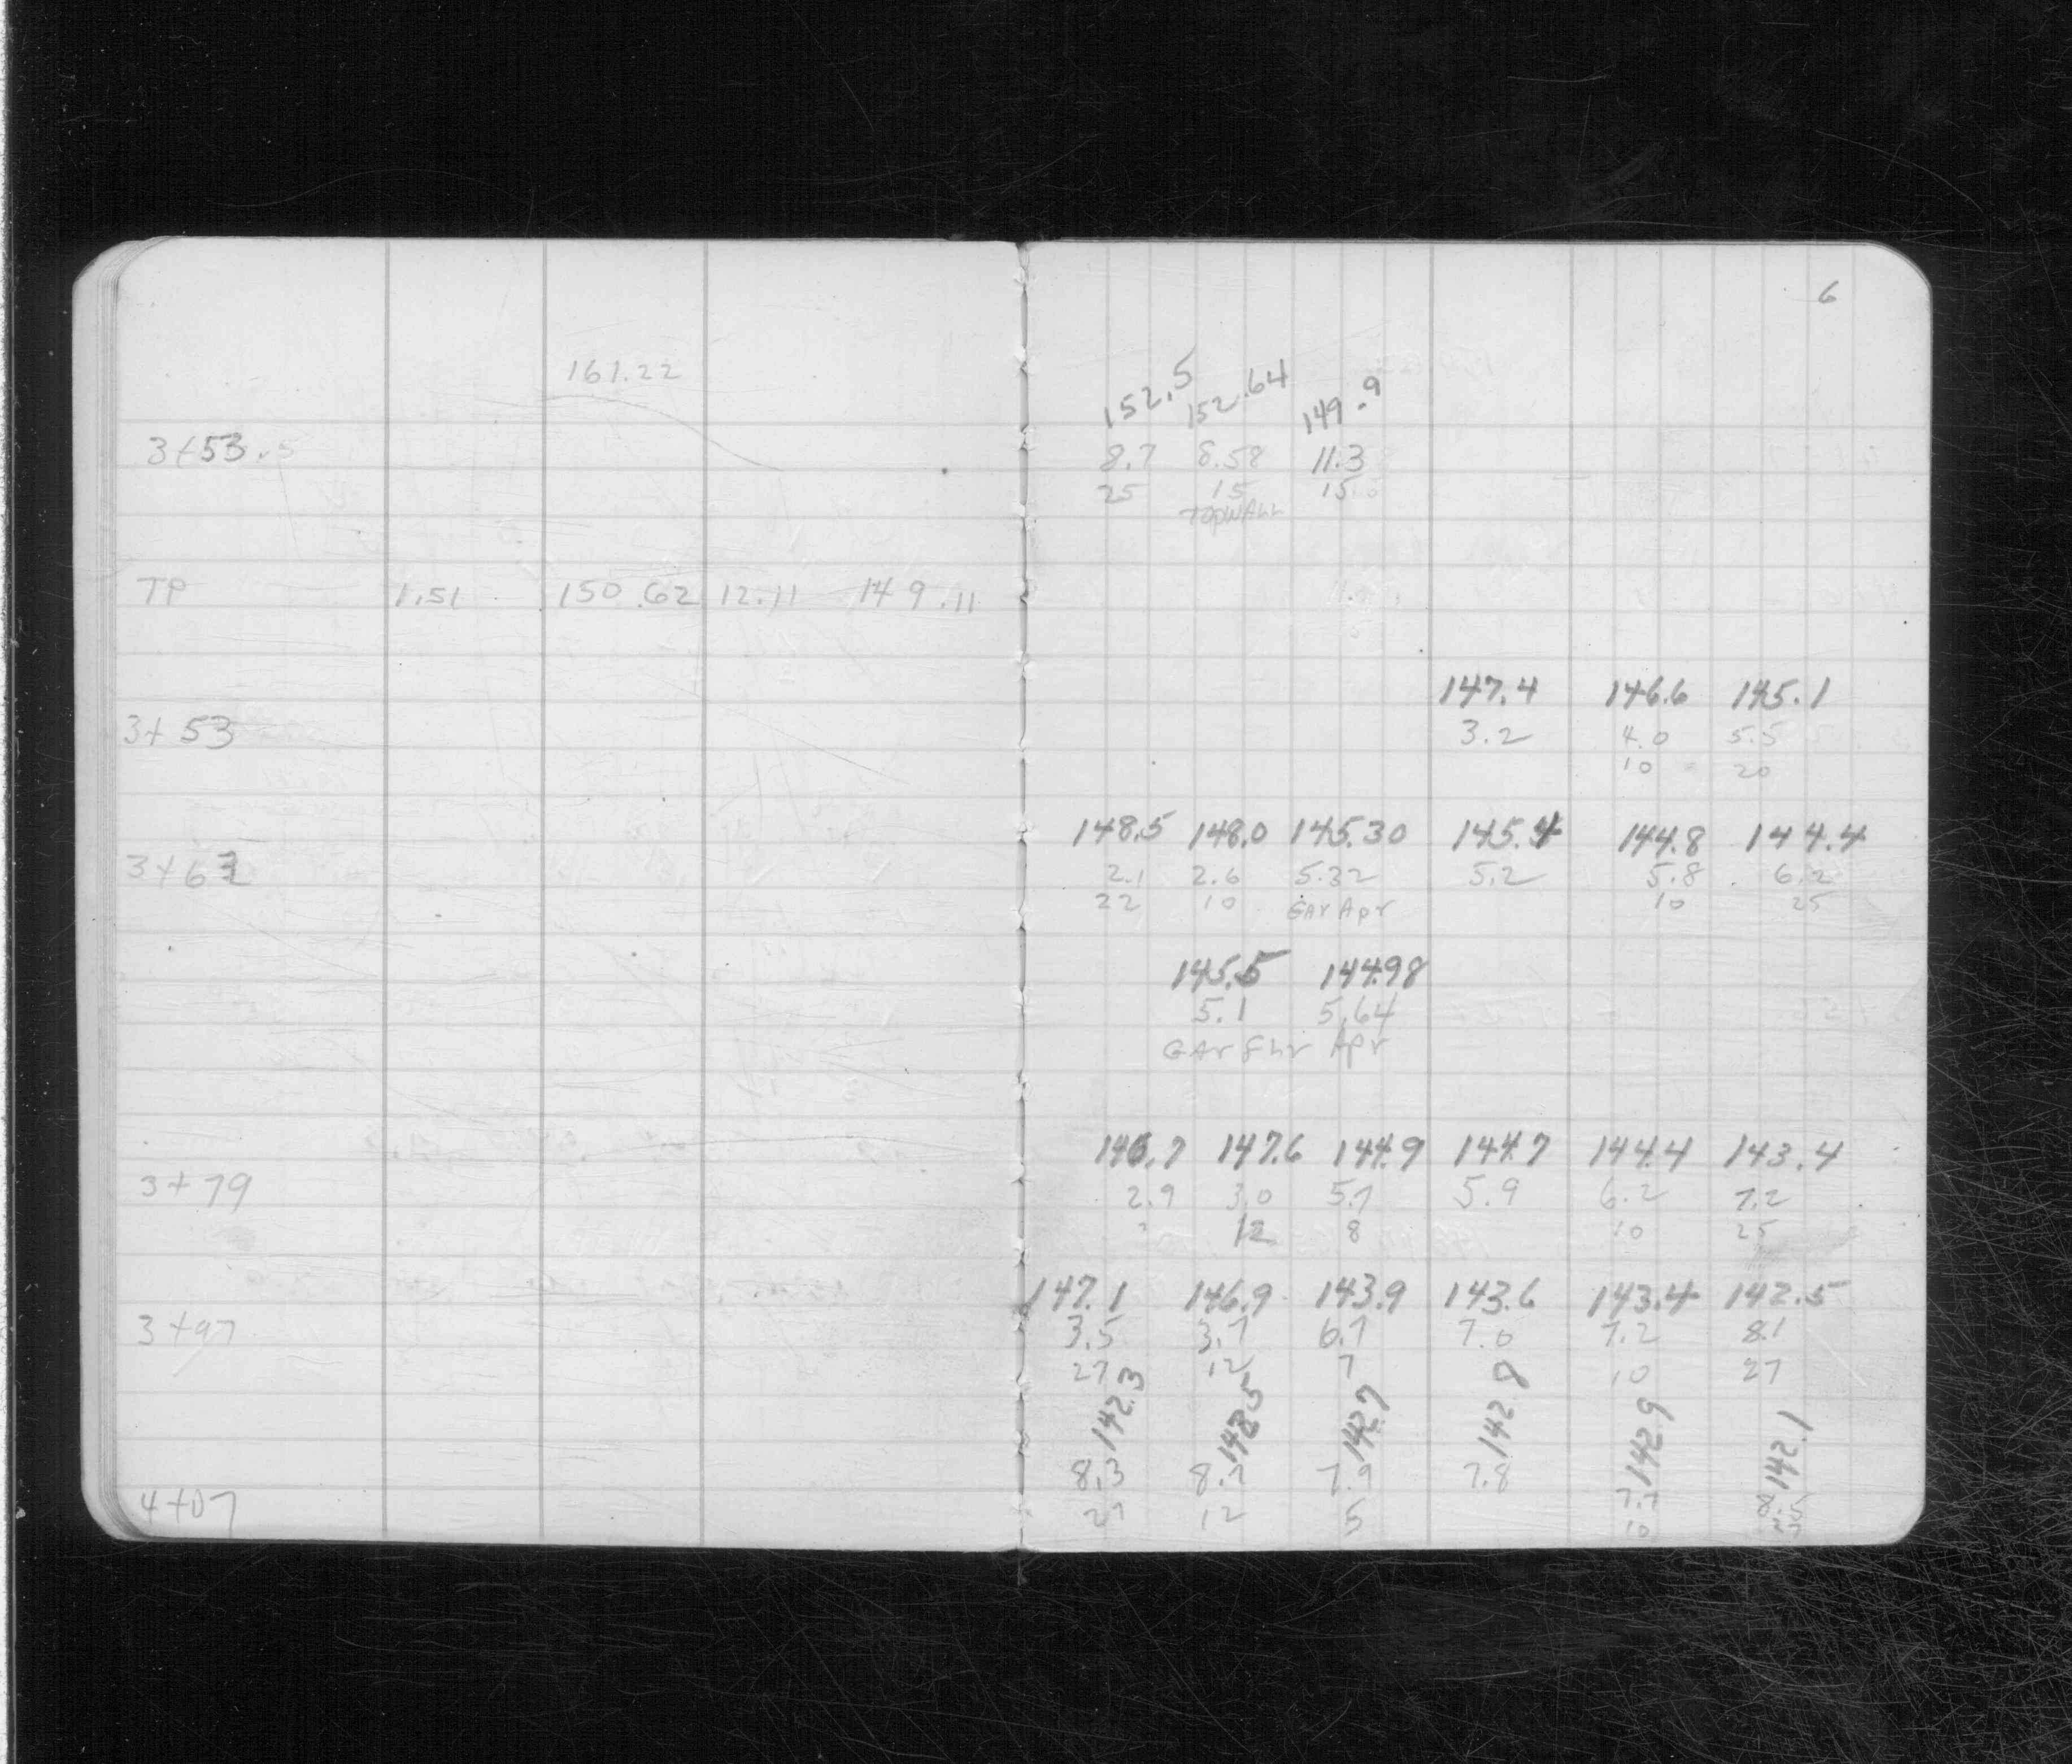 6
161.22
152.5 152.64 149.9
3+53.5 8.7 8.58 11.3
25 15 15.5
TOPWALL
TP 1.51 150.62 12.11 149.11
147.4 146.6 145.1
3+53 3.2 4.0 5.5
10 20
148.5 148.0 145.30 145.4 144.8 144.4
3+62 2.1 2.6 5.32 5.2 5.8 6.2
22 10 GAr Apr 10 25
145.5 144.98
5.1 5.64
GAr Flr Apr
147.6 144.9 144.7 144.4 143.4
3+79 2.9 3.0 5.7 5.9 6.2 7.2
12 8 10 25
147.1 146.9 143.9 143.6 143.4 142.5
3+97 3.5 3.7 6.7 7.0 7.2 8.1
27 12 7 10 27
142.3 142.7 142.8 142.9 142.1
8.3 8.1 7.9 7.8 7.7 8.5
4+07 27 12 5 10